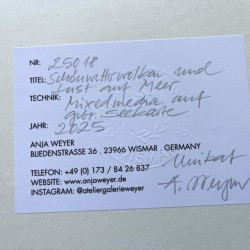 NR: 25018
TITEL: Schönwetterwolken und
Lust auf Meer
TECHNIK: Mixedmedia auf
gebr. Seekarte
JAHR: 2025
ANJA WEYER
BLIEDENSTRASSE 36 . 23966 WISMAR . GERMANY
Unikat
TELEFON: +49 (0) 173 / 84 26 837
WEBSITE: www.anjaweyer.com
INSTAGRAM: @ateliergalerieweyer
A. Weyer